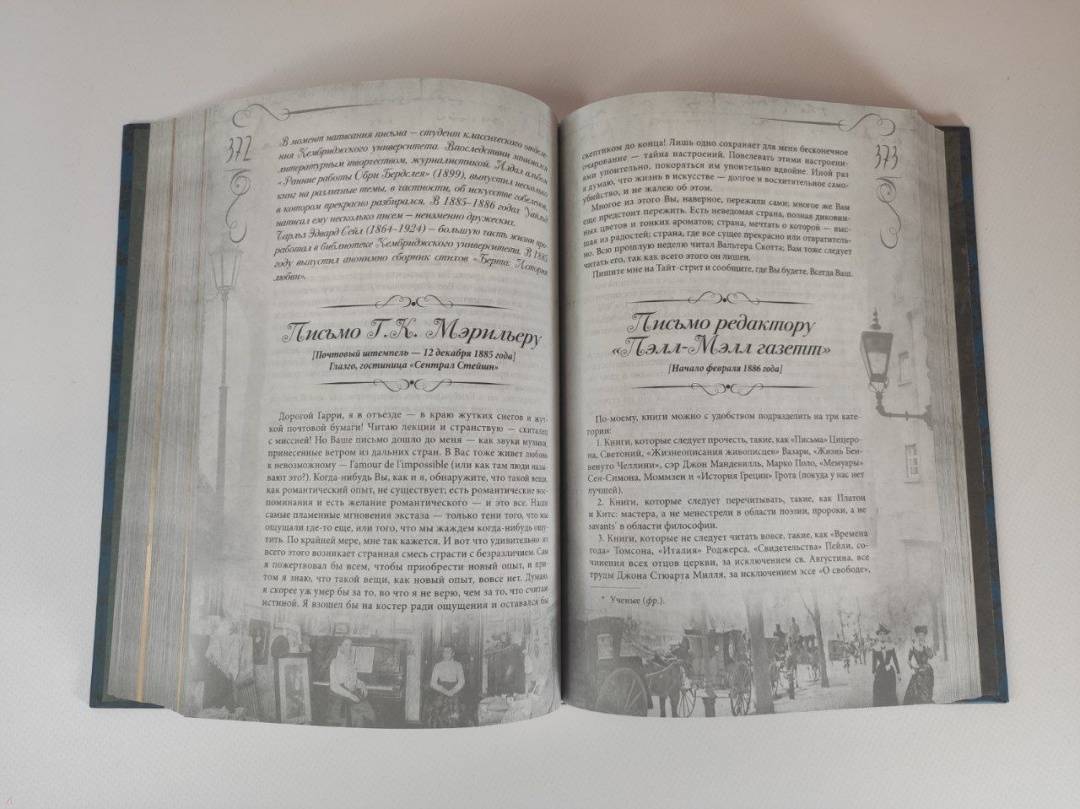 372
В момент написания письма — студент классического отделе-
ния Кембриджского университета. Впоследствии занимался
литературным творчеством, журналистикой. Издал альбом
«Ранние работы Обри Бердслея» (1899), выпустил несколько
книг на различные темы, в частности, об искусстве гобеленов,
в котором прекрасно разбирался. В 1885–1886 годах Уайльд
написал ему несколько писем — неизменно дружеских.
Чарльз Эдвард Сейл (1864–1924) — большую часть жизни про-
работал в библиотеке Кембриджского университета. В 1885
году выпустил анонимно сборник стихов «Берта: История
любви».
Письмо Г.К. Мэрильеру
[Почтовый штемпель — 12 декабря 1885 года]
Глазго, гостиница «Сентрал Стейшн»
Дорогой Гарри, я в отъезде — в краю жутких снегов и жут-
кой почтовой бумаги! Читаю лекции и странствую — скиталец
с миссией! Но Ваше письмо дошло до меня — как звуки музыки,
принесенные ветром из дальних стран. В Вас тоже живет любовь
к невозможному — l'amour de l'impossible (или как там люди назы-
вают это?). Когда-нибудь Вы, как и я, обнаружите, что такой вещи,
как романтический опыт, не существует; есть романтические вос-
поминания и есть желание романтического — и это все. Наши
самые пламенные мгновения экстаза — только тени того, что мы
ощущали где-то еще, или того, что мы жаждем когда-нибудь ощу-
тить. По крайней мере, мне так кажется. И вот что удивительно: из
всего этого возникает странная смесь страсти с безразличием. Сам
я пожертвовал бы всем, чтобы приобрести новый опыт, и при
этом я знаю, что такой вещи, как новый опыт, вовсе нет. Думаю,
я скорее уж умер бы за то, во что я не верю, чем за то, что считаю
истиной. Я взошел бы на костер ради ощущения и оставался бы
373
скептиком до конца! Лишь одно сохраняет для меня бесконечное
очарование — тайна настроений. Повелевать этими настроени-
ями упоительно, покоряться им упоительно вдвойне. Иной раз
я думаю, что жизнь в искусстве — долгое и восхитительное само-
убийство, и не жалею об этом.
Многое из этого Вы, наверное, пережили сами; многое же Вам
еще предстоит пережить. Есть неведомая страна, полная диковин-
ных цветов и тонких ароматов; страна, мечтать о которой — выс-
шая из радостей; страна, где все сущее прекрасно или отвратитель-
но. Всю прошлую неделю читал Вальтера Скотта; Вам тоже следует
читать его, так как всего этого он лишен.
Пишите мне на Тайт-стрит и сообщите, где Вы будете. Всегда Ваш.
Письмо редактору
«Пэлл-Мэлл газетт»
[Начало февраля 1886 года]
По-моему, книги можно с удобством подразделить на три кате-
гории:
1. Книги, которые следует прочесть, такие, как «Письма» Цицеро-
на, Светоний, «Жизнеописания живописцев» Вазари, «Жизнь Бен-
венуто Челлини», сэр Джон Мандевилль, Марко Поло, «Мемуары»
Сен-Симона, Моммзен и «История Греции» Грота (покуда у нас нет
лучшей).
2. Книги, которые следует перечитывать, такие, как Платон
и Китс: мастера, а не менестрели в области поэзии, пророки, а не
savants* в области философии.
3. Книги, которые не следует читать вовсе, такие, как «Времена
года» Томсона, «Италия» Роджерса, «Свидетельства» Пейли, со-
чинения всех отцов церкви, за исключением св. Августина, все
труды Джона Стюарта Милля, за исключением эссе «О свободе»,
* Ученые (фр.).